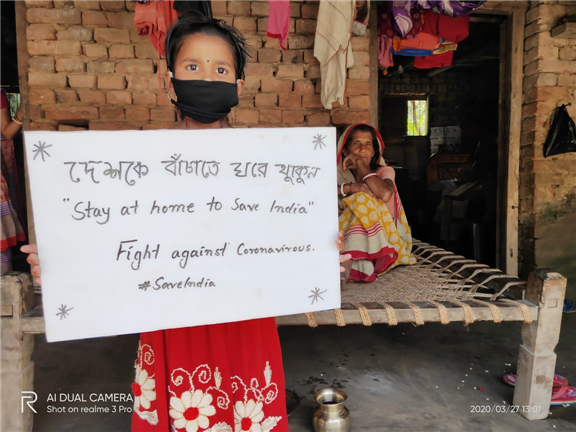 দেশকে বাঁচাতে ঘরে থুকুন
"Stay at home to Save India"
Fight against Coronavirous.
#SaveIndia
AI DUAL CAMERA
Shot on realme 3 Pro
2020/03/27 13:01